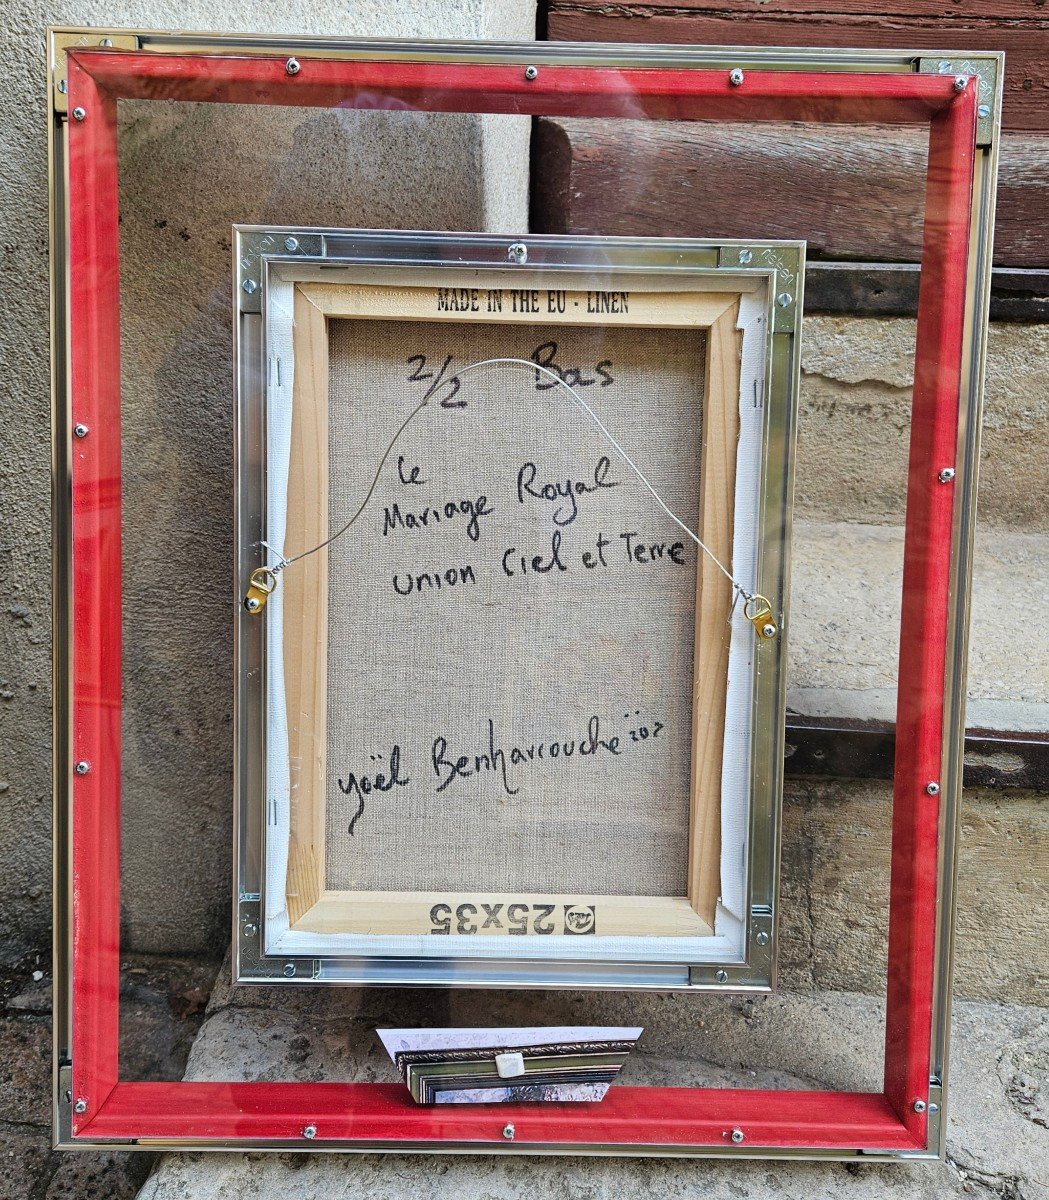 MADE IN THE EU - LINEN
2/2 Bas
Le
Mariage Royal
union Ciel et Terre
Yoël Benharrouche
25x35